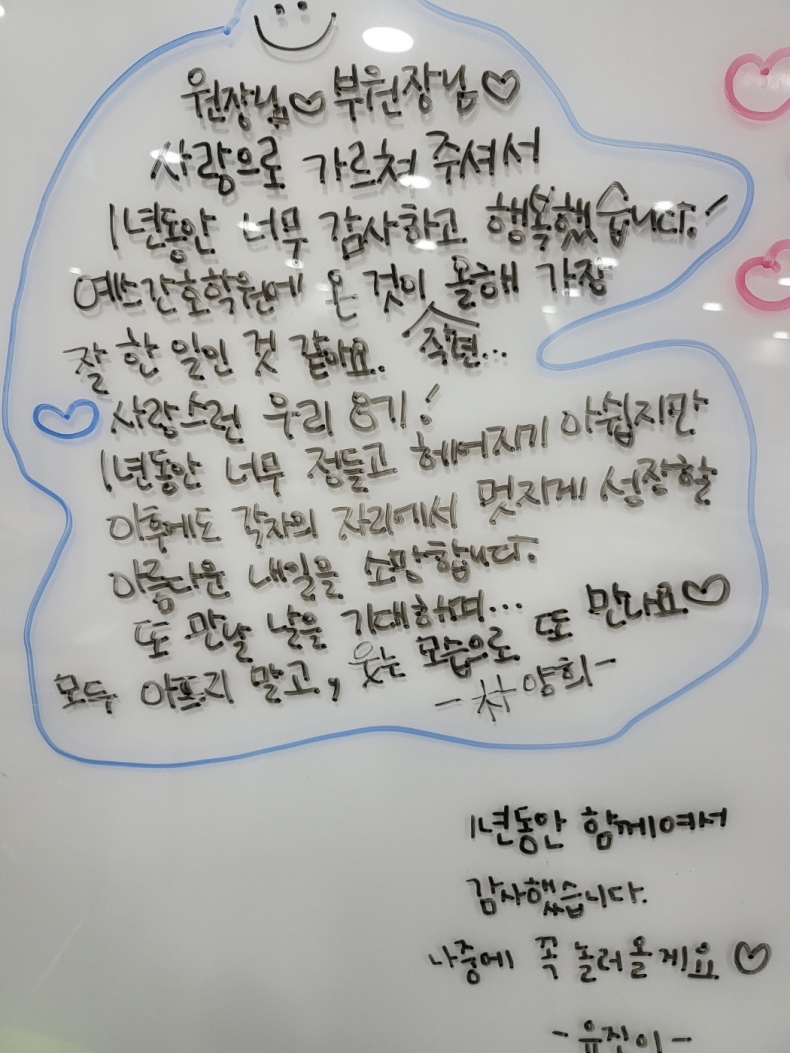 원장님♡ 부원장님♡
사랑으로 가르쳐 주셔서
1년동안 너무 감사하고 행복했습니다!
예스간호학원에 온 것이 올해 가장
잘 한 일인 것 같아요. 작년...
사랑스런 우리 8기!
1년동안 너무 정들고 헤어지기 아쉽지만
이후에도 각자의 자리에서 멋지게 성장할
아름다운 내일을 소망합니다.
또 만날 날을 기대하며...
모두 아프지 말고, 웃는 모습으로 또 만나요♡
- 양희 -
1년동안 함께여서
감사했습니다.
나중에 꼭 놀러올게요 ♡
- 유진이 -